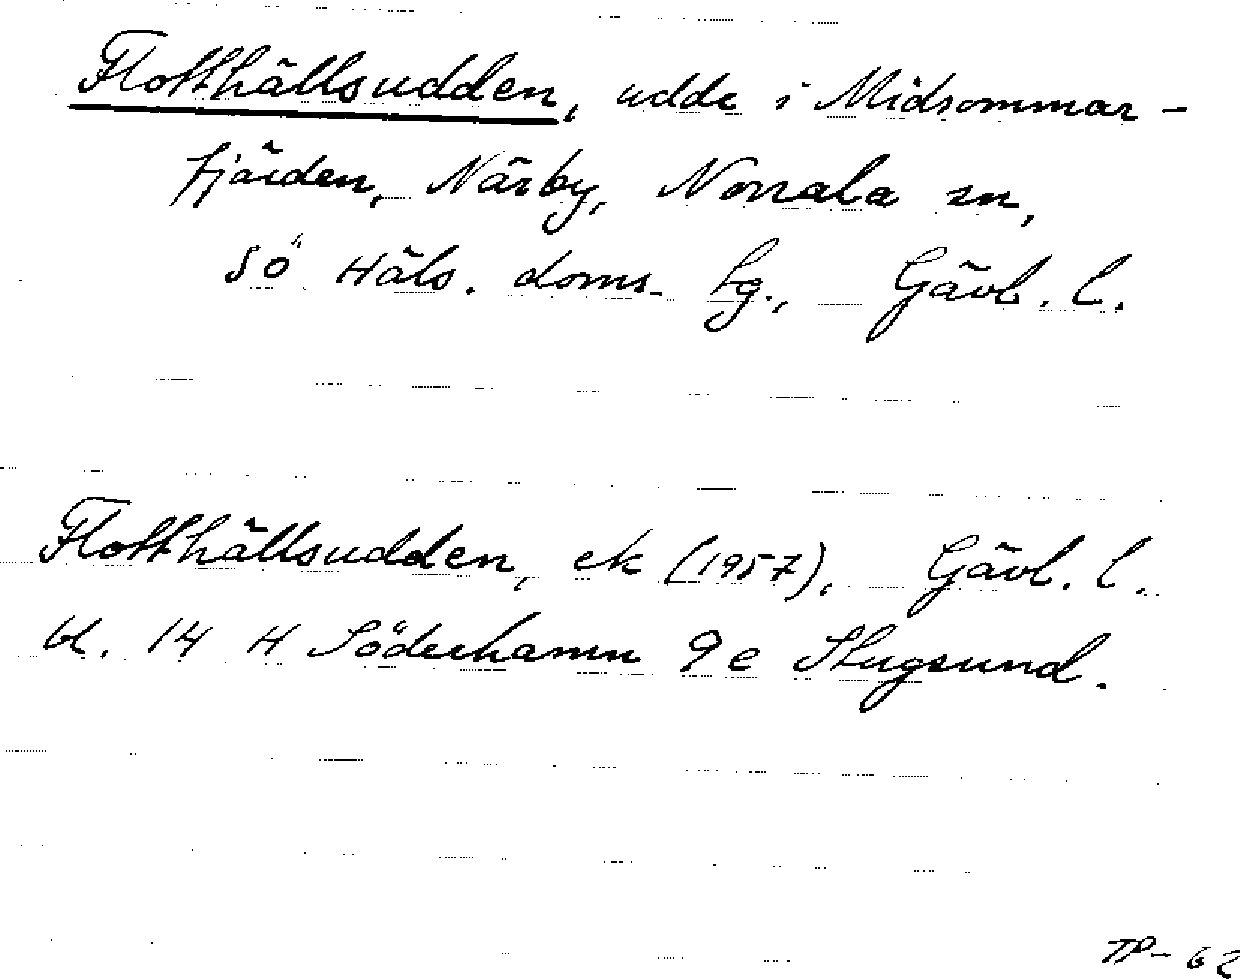 Flotthällsudden, udde i Midsommar-
fjärden, Närby, Norrala sn,
Sö Häls. doms. fg., Gävl. l.
Flotthällsudden, ek (1957), Gävl. l.
bl. 14 H Söderhamn 9 e Stugsund.
TP-62